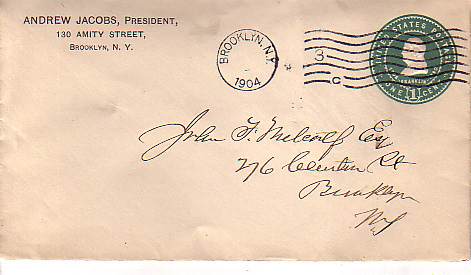 ANDREW JACOBS, PRESIDENT,
130 AMITY STREET,
BROOKLYN, N. Y.
BROOKLYN, N.Y.
1904
3
C
UNITED STATES POSTAGE
FRANKLIN
ONE 1 CENT
John F. Metcalf Esq
276 Clinton St
Brooklyn
NY